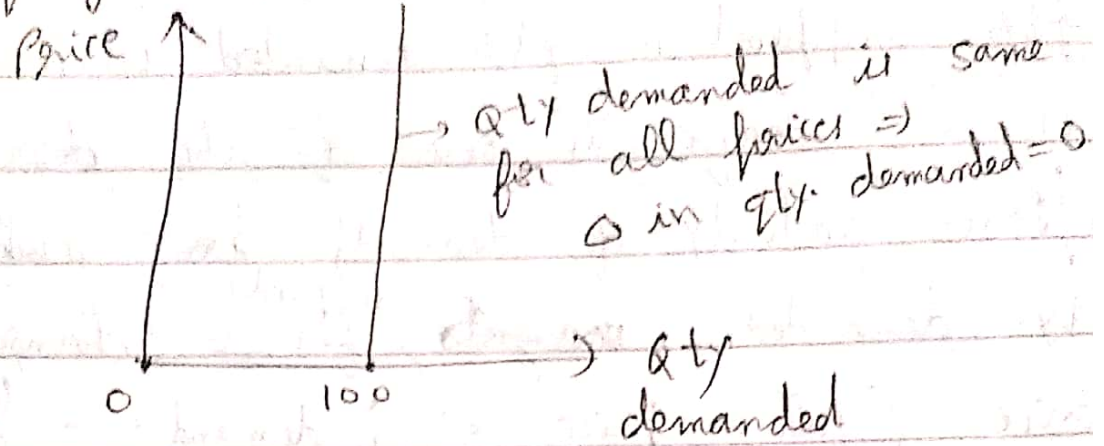 Price
→ Qty demanded is same
for all prices ⇒
Δ in qty. demanded = 0
0
100
Qty
demanded